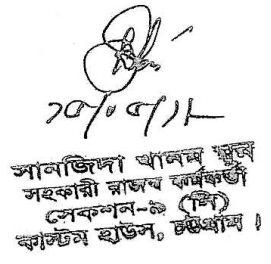 ১৫/০৫/১২
সানজিদা খানম মুন
সহকারী রাজস্ব কর্মকর্তা
সেকশন-৯ (পি)
কাস্টম হাউস, চট্টগ্রাম।